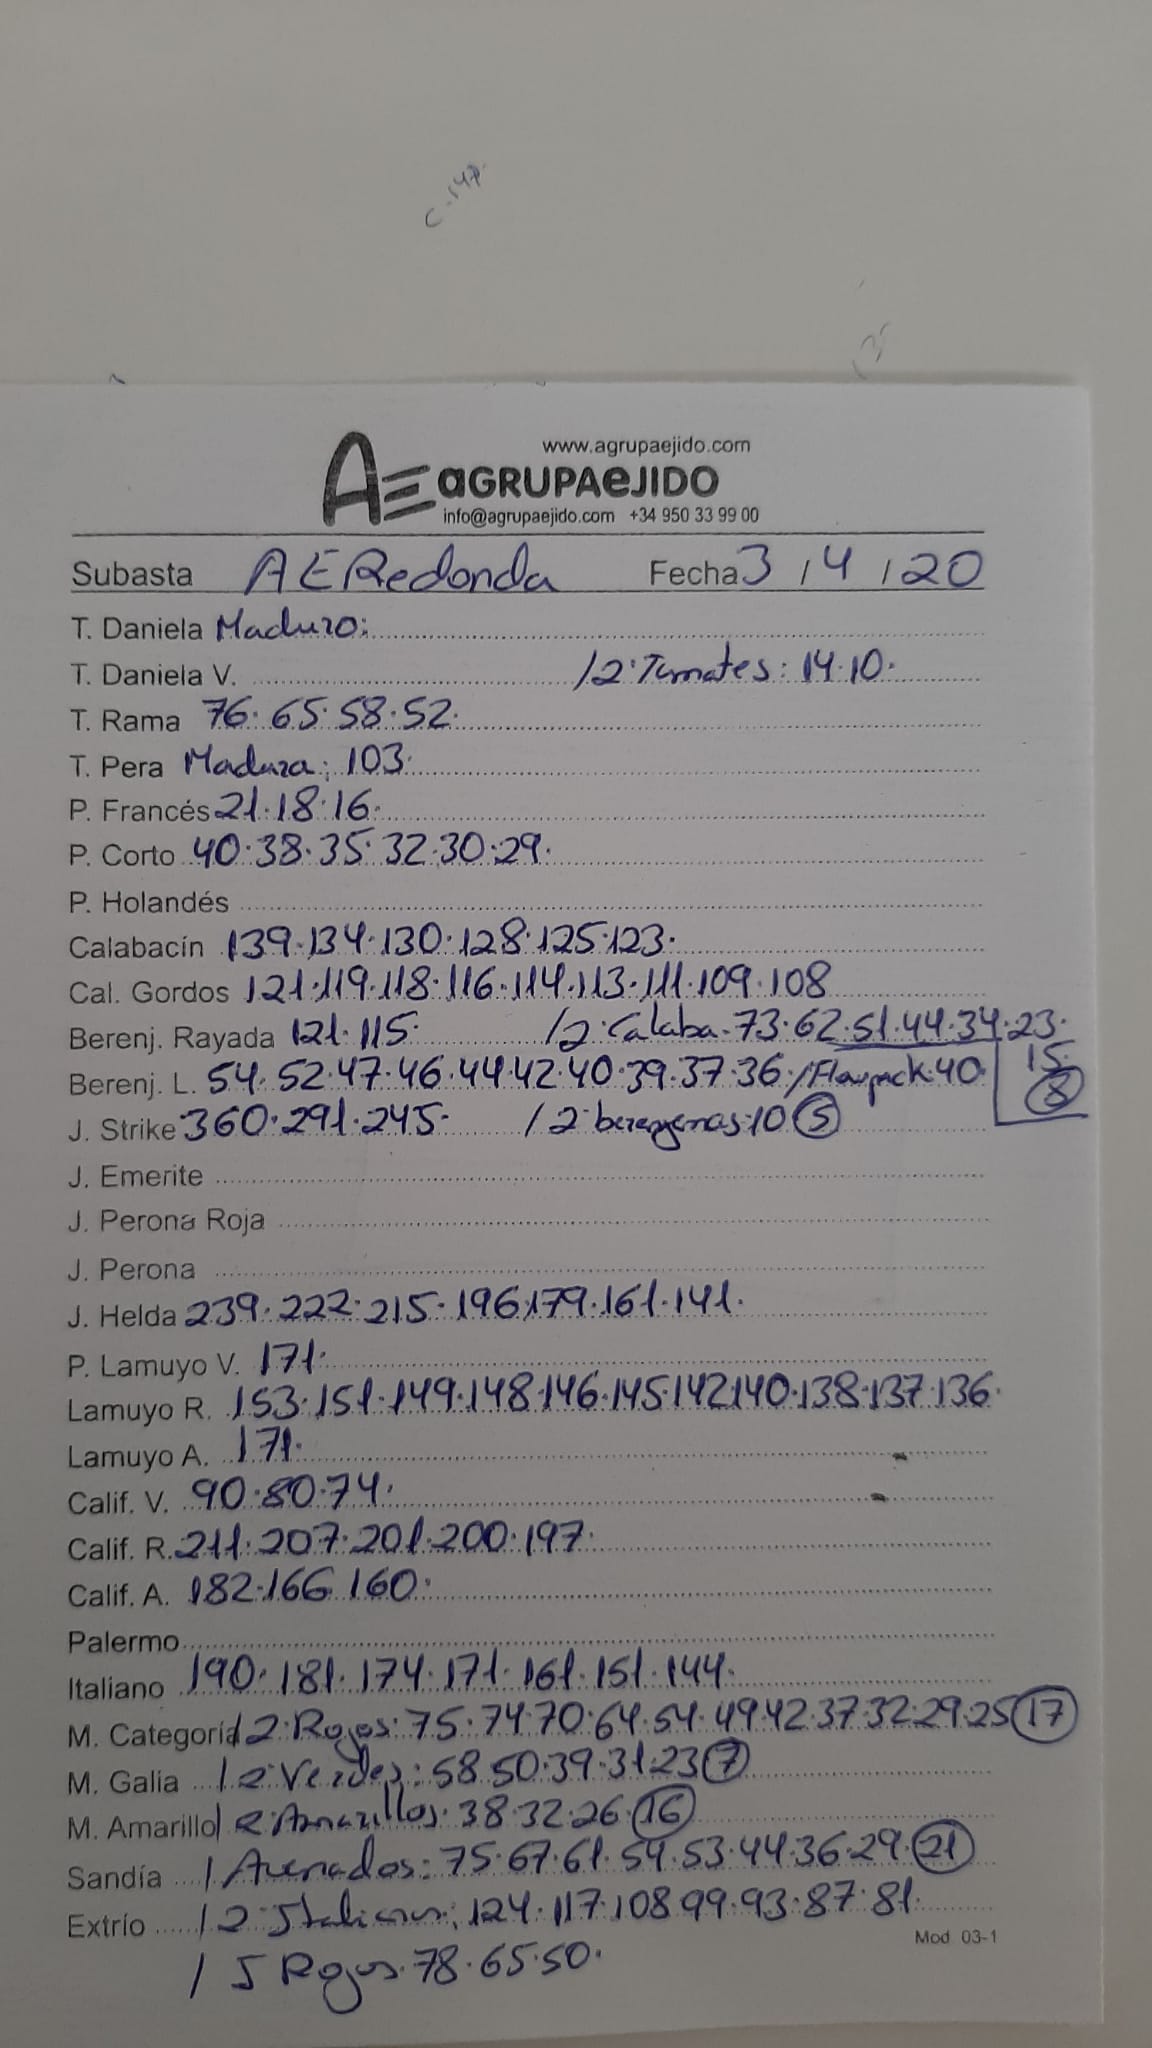 C-147.
www.agrupaejido.com
AE aGRUPAeJIDO
info@agrupaejido.com +34 950 33 99 00
Subasta AE Redonda Fecha 3 / 4 / 20
T. Daniela Maduro:
T. Daniela V. /2ªTomates: 14.10.
T. Rama 76.65.58.52.
T. Pera Madura: 103.
P. Francés 21.18.16.
P. Corto 40.38.35.32.30.29.
P. Holandés
Calabacín 139.134.130.128.125.123.
Cal. Gordos 121.119.118.116.114.113.111.109.108
Berenj. Rayada 121.115. /2ªCalaba.73.62.51.44.34.23.
15.
Berenj. L. 54.52.47.46.44.42.40.39.37.36./Flowpack.40
8
J. Strike 360.291.245. /2ªberenjenas:10 5
J. Emerite
J. Perona Roja
J. Perona
J. Helda 239.222.215.196.179.161.141.
P. Lamuyo V. 171.
Lamuyo R. 153.151.149.148.146.145.142.140.138.137.136.
Lamuyo A. 171.
Calif. V. 90.80.74.
Calif. R. 211.207.201.200.197.
Calif. A. 182.166.160.
Palermo
Italiano 190.181.174.171.161.151.144.
M. Categoría /2ªRojos:75.74.70.64.54.49.42.37.32.29.25 17
M. Galia /2ªVerdes:58.50.39.31.23 7
M. Amarillo /2ªAmarillos.38.32.26.16
Sandía /Averiados:75.67.61.54.53.44.36.29.21
Extrío /2ªItalianos:124.117.108.99.93.87.81.
Mod. 03-1
/ 5 Rojos.78.65.50.